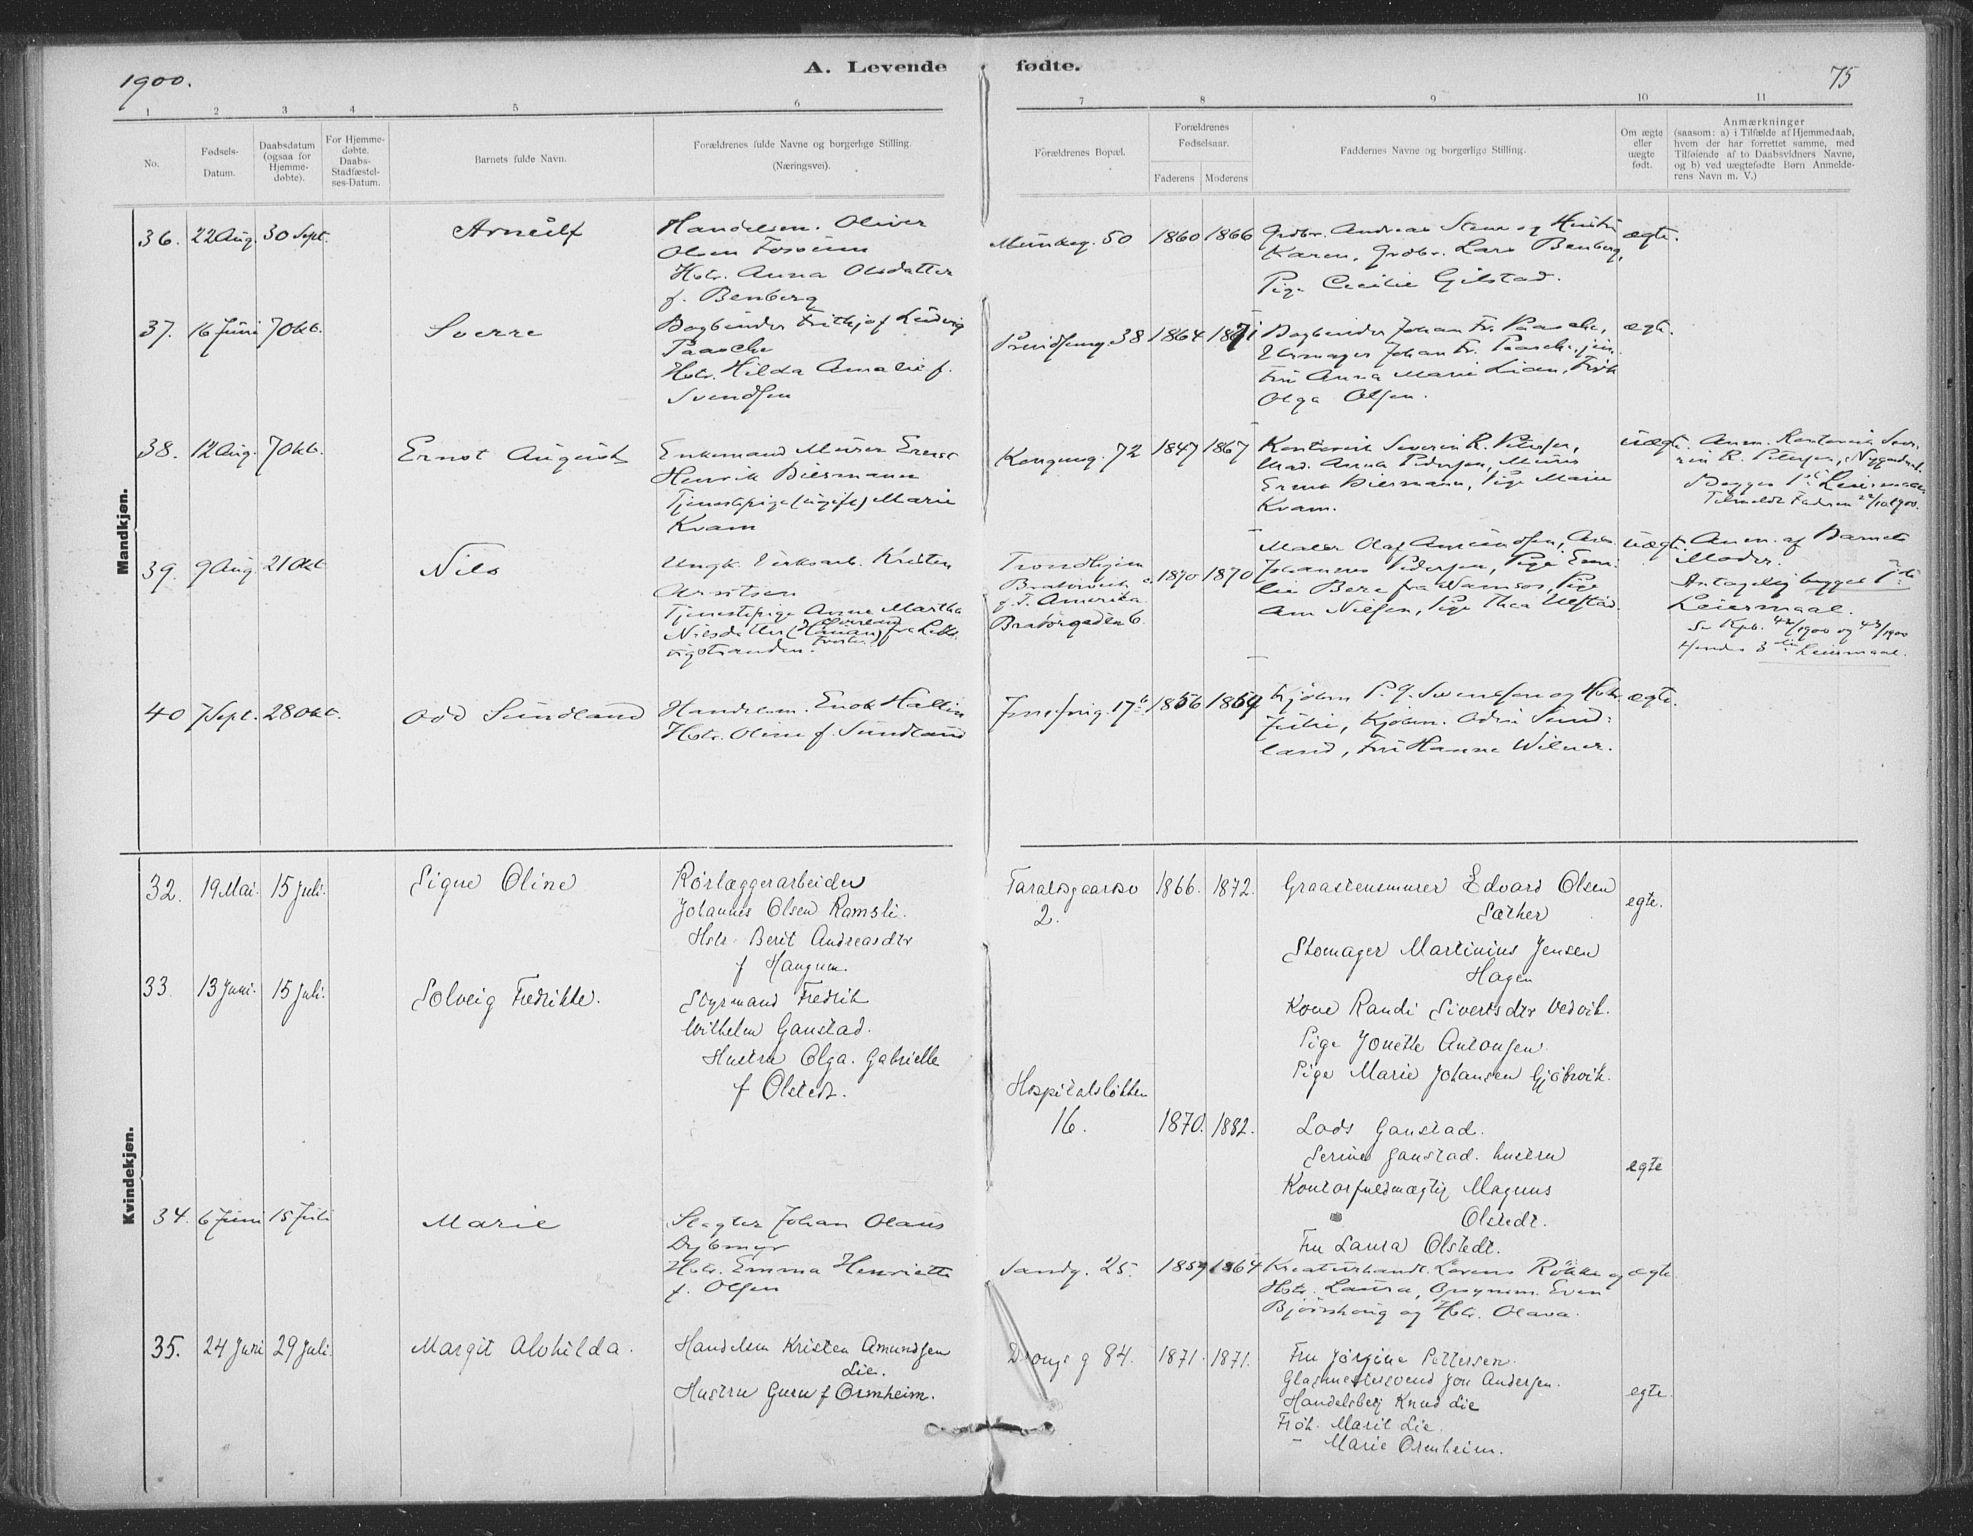 1900.
A. Levende fødte.
75
1 2 3 4 5 6 7 8 9 10 11
No.
Fødsels-
Datum.
Daabsdatum
(ogsaa for
Hjemme-
døbte).
For Hjemme-
døbte.
Daabs-
Stadfæstel-
ses-Datum.
Barnets fulde Navn.
Forældrenes fulde Navne og borgerlige Stilling.
(Næringsvei).
Forældrenes Bopæl.
Forældrenes
Fødselsaar.
Faderens Moderens
Faddernes Navne og borgerlige Stilling.
Om ægte
eller
uægte
født.
Anmærkninger
(saasom: a) i Tilfælde af Hjemmedaab,
hvem der har forrettet samme, med
Tilføiende af to Daabsvidners Navne,
og b) ved uægtefødte Børn Anmelde-
rens Navn m. V.)
Mandkjøn.
36. 22 Aug. 30 Sept. Arneulf
Handelsm. Oliver
Olsen Fosseim
Hstr. Anna Olsdatter
f. Benberg
Munkeg. 50 1860 1866
Grdbr. Andreas Stene og Hustru
Karen, Grdbr. Lars Benberg,
Pige Cecilie Gilstad.
ægte.
37. 16 Juni 7 Okt. Sverre
Bogbinder Frithjof Ludvig
Paasche
Hstr. Hilda Amalie f.
Svendsen
38 1864 1871
Bogbinder Johan Fr. Paasche,
Uhrmager Johan Fr. Paasche jun.
Fru Anna Marie Lian, Frøk
Olga Olsen.
ægte.
38. 12 Aug. 7 Okt. Ernst August
Enkemand Murer Ernst
Henrik Biermann
Tjenestepige (ugift) Marie
Kvam
Kongensg. 72 1847 1867
Kontorist Severin R. Petersen,
Mad. Anna Pedersen, Murer
Ernst Biermann, Pige Marie
Kvam.
uægte.
Anm. Kontorist Seve-
rin R. Petersen,
Begges 1ste Leiermaal
Tilmeldt Faderen 22/10 1900.
39. 9 Aug. 21 Okt. Nils
Ungk. Kristen
Arntsen
Tjenestepige Anne Martha
Nilsdatter fra Leks-
vigstranden.
Trondhjem
Amerika
Bratørgaden 6.
1870 1870
Maler Olaf Amundsen, Arb.
Johannes Pedersen, Pige Emi-
lie Berg fra Namsos, Pige
Ane Nilsen, Pige Thea Ulstad.
uægte.
Anm. af Barnets
Moder.
Antagelig begges 1ste
Leiermaal.
Se Kpb. 42/1900 og 43/1900
Hendes 3die Leiermaal.
40 7 Sept. 28 Okt. Odd Sundland
Handelsm. Enok Hallin
Hstr. Oline f. Sundland
17 b 1856 1859
Kjøbm P. J. Svendsen og Hstr
Julie, Kjøbm. Odin Sund-
land, Fru Hanna Wilner.
ægte.
Kvindekjøn.
32. 19 Mai. 15 Juli. Signe Oline
Rørlæggerarbeider
Johannes Olsen Ramsli.
Hstr. Berit Andreasdtr
f Haugum.
Taraldsgaardsv
2.
1866. 1872.
Graastensmurer Edvard Olsen
Sæther
Skomager Martinius Jensen
Hagen
Kone Randi Sivertsdtr Vedvik.
Pige Jonette Antonsen.
Pige Marie Johansen Gjøbvik.
egte.
33. 13 Juni. 15 Juli. Solveig Fredrikke.
Styrmand Fredrik
Wilhelm Ganstad.
Hustru Olga Gabrielle
f Olstedt.
Hospitalsløkken
16.
1870. 1882.
Lods Ganstad.
Serine Ganstad. hustru
Kontorfuldmægtig Magnus
Olstedt.
Fru Laura Olstedt.
egte
34. 6 Juni 15 Juli Marie
Slagter Johan Olaus
Dybmyr
Hstr. Emma Henriette
f. Olsen
Sandg. 25. 1859 1864
Kreaturhandl. Lorens Røkke og
Hstr. Laura, Opsynsm. Even
Bjørnhaug og Hstr. Olava.
ægte
35. 24 Juni 29 Juli. Margit Alvhilda.
Handelsm Kristen Amundsen
Lie.
Hustru Guru f Ormheim.
Drongs g 84. 1871. 1871.
Fru Jørgine Pettersen.
Glasmestersvend Jon Andersen.
Handelsbetj Knud Lie
Frøk. Marit Lie.
– Marie Ormheim.
egte.